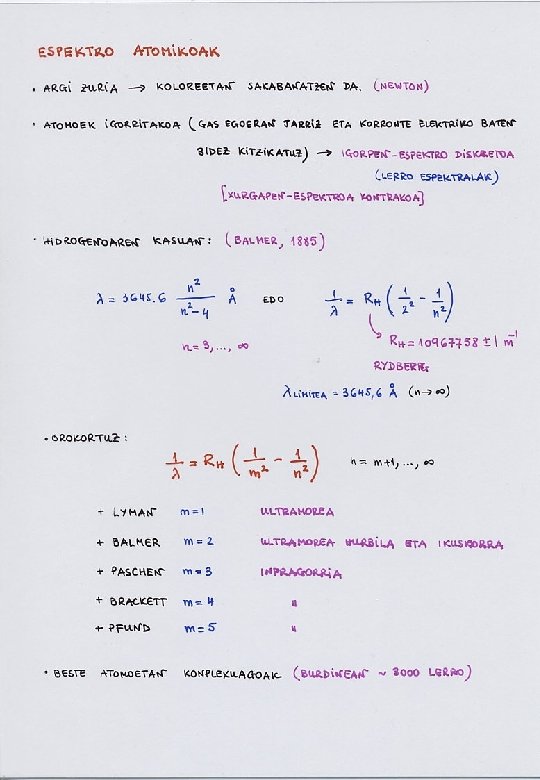 ESPEKTRO ATOMIKOAK
· ARGI ZURIA → KOLOREETAN SAKABANATZEN DA. (NEWTON)
· ATOMOEK IGORRITAKOA (GAS EGOERAN JARRIZ ETA KORRONTE ELEKTRIKO BATEN
BIDEZ KITZIKATUZ) → IGORPEN-ESPEKTRO DISKRETOA
(LERRO ESPEKTRALAK)
[XURGAPEN-ESPEKTROA KONTRAKOA]
· HIDROGENOAREN KASUAN: (BALMER, 1885)
λ = 3645.6 n²/(n²-4) Å EDO 1/λ = R_H (1/2² - 1/n²)
n = 3, ..., ∞ R_H = 10967758 ± 1 m⁻¹
RYDBERG
λ LIMITEA = 3645,6 Å (n→∞)
· OROKORTUZ:
1/λ = R_H (1/m² - 1/n²) n = m+1, ..., ∞
+ LYMAN m=1 ULTRAMOREA
+ BALMER m=2 ULTRAMOREA HURBILA ETA IKUSKORRA
+ PASCHEN m=3 INFRAGORRIA
+ BRACKETT m=4 "
+ PFUND m=5 "
· BESTE ATOMOETAN KONPLEXUAGOAK (BURDINEAN ~ 3000 LERRO)